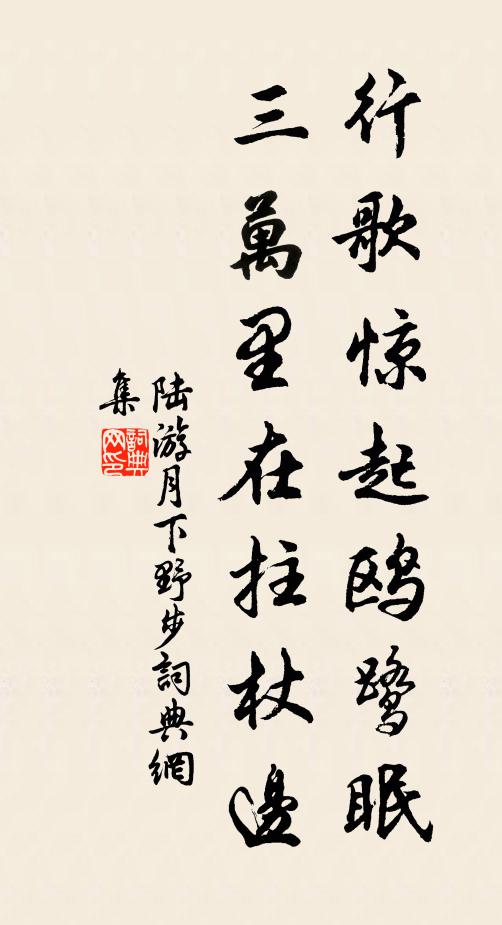 行歌惊起鸥鹭眠
三萬里在拄杖邊
陆游月下野步詞典網
集
詞典
网印